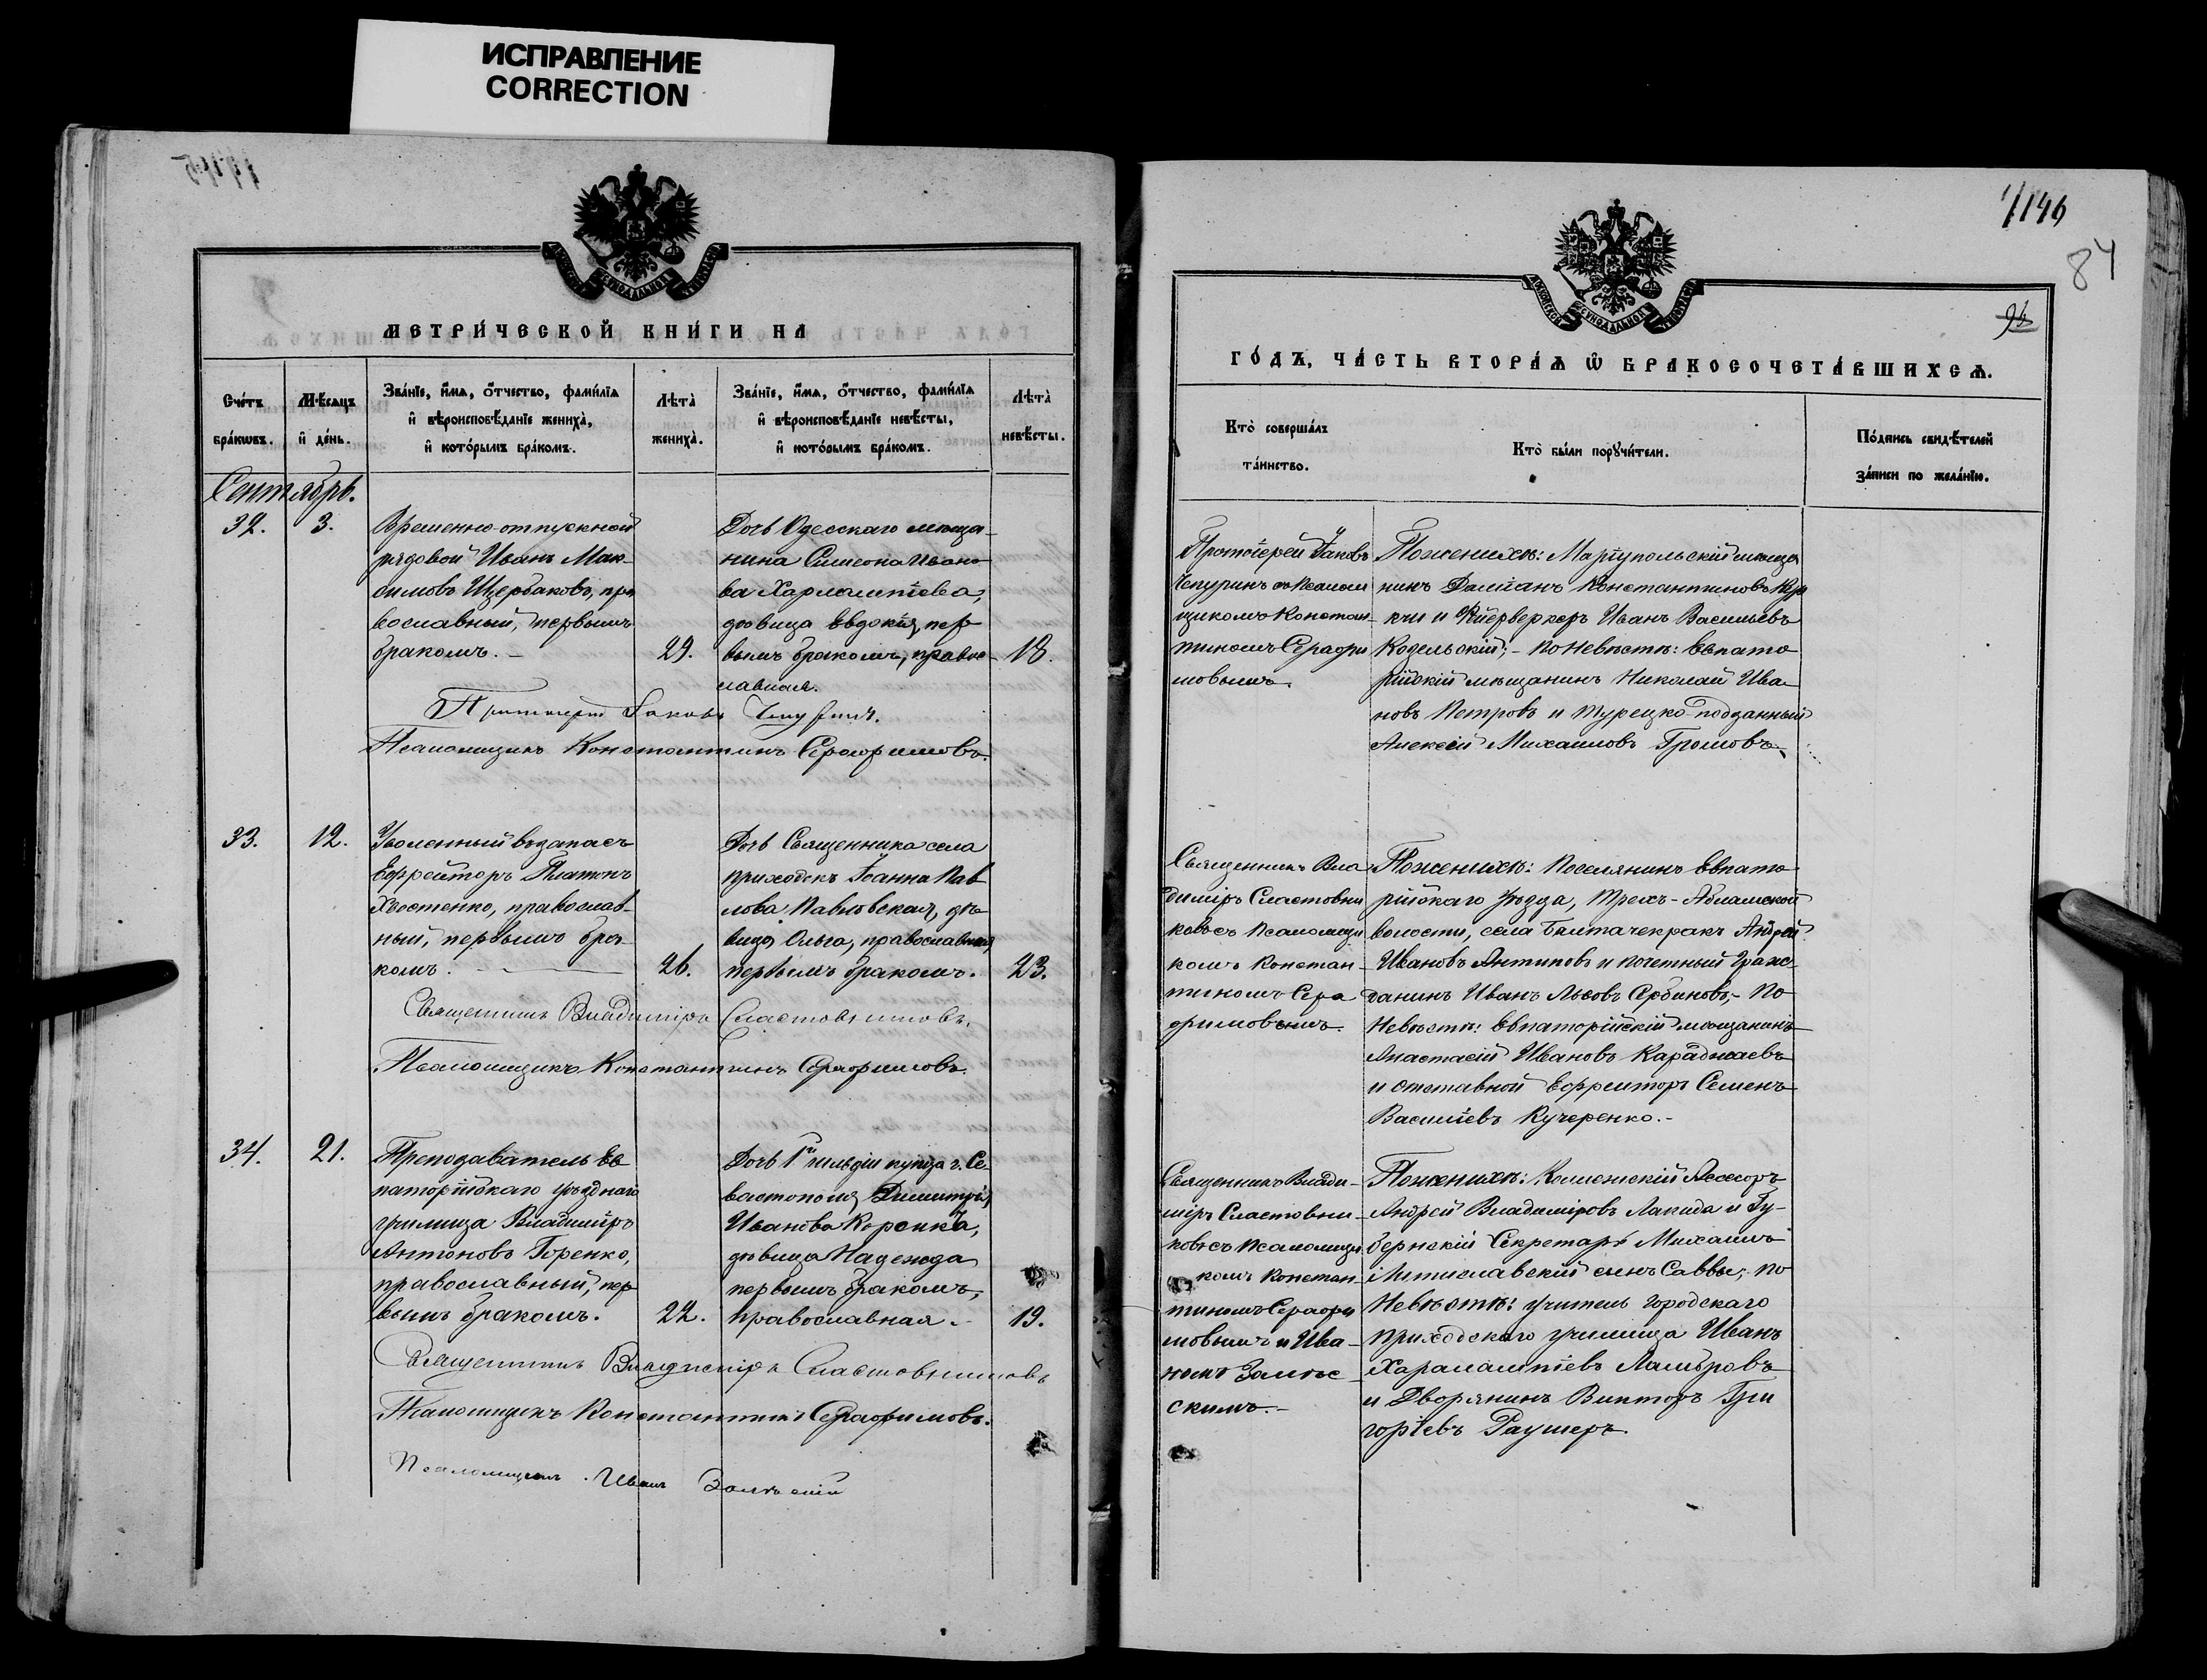 ИСПРАВЛЕНИЕ
CORRECTION
МЕТРИ́ЧЕСКОЙ КНИ́ГИ НА
Сче́тъ бра́кѡвъ.
Мѣ́сяцъ и҆ де́нь.
Зва́нїе, и҆́мѧ, ѻ҆́тчество, фами́лїѧ
и҆ вѣроисповѣ́данїе жениха̀,
и҆ кото́рымъ бра́комъ.
Лѣта̀ жениха̀.
Зва́нїе, и҆́мѧ, ѻ҆́тчество, фами́лїѧ
и҆ вѣроисповѣ́данїе невѣ́сты,
и҆ кото́рымъ бра́комъ.
Лѣта̀ невѣ́сты.
Сентябрь.
32.
3.
Временно-отпускной
рядовой Иванъ Мак-
симовъ Щербаковъ, пра
вославный, первымъ
бракомъ.
29.
Дочь Одесскаго мѣща-
нина Симеона Ивано
ва Харлампіева,
дѣвица Евдокія, пер
вымъ бракомъ, право-
славная.
18.
Протоіерей Іаковъ Чепуринъ.
Псаломщикъ Константинъ Серафимовъ.
33.
12.
Уволенный въ запасъ
Ефрейторъ Платонъ
Хвостенко, православ-
ный, первымъ бра-
комъ.
26.
Дочь Священника села
Іоанна Пав
лова Павловская, дѣ-
вица Ольга, православная,
первымъ бракомъ.
23.
Священникъ Владиміръ Сластовниковъ.
Псаломщикъ Константинъ Серафимовъ.
34.
21.
Преподаватель Ев
паторійскаго уѣзднаго
училища Владиміръ
Антоновъ Горенко,
православный, пер
вымъ бракомъ.
22.
Дочь 1й гильдіи купца г. Се-
вастополя Димитрія
Иванова
дѣвица Надежда
первымъ бракомъ,
православная.
19.
Священникъ Владиміръ Сластовниковъ
Псаломщикъ Константинъ Серафимовъ.
Псаломщикъ Иванъ Залѣсскій
1146
84
ГО́ДЪ, ЧА́СТЬ ВТОРА́Ѧ Ѽ БРАКОСОЧЕТА́ВШИХСѦ.
Кто̀ соверша́лъ
та́инство.
Кто̀ бы́ли порꙋчи́тели.
По́дпись свидѣ́телей
за́писи по жела́нїю.
Протоіерей Іаковъ
Чепуринъ съ Псалом
щикомъ Констан
тиномъ Серафи
мовымъ.
По женихѣ: Маріупольскій мѣща
нинъ Даміанъ Константиновъ
и Фейерверкеръ Иванъ Васильевъ
Козельскій; - по Невѣстѣ: Евпато
рійскій мѣщанинъ Николай Ива-
новъ Петровъ и Турецко-подданный
Алексій Михаиловъ Громовъ.
Священникъ Вла
диміръ Сластовни
ковъ съ Псаломщи
комъ Констан-
тиномъ Сера
фимовымъ.
По женихѣ: Поселянинъ Евпато-
рійскаго уѣзда, Трехъ-Абламской
волости, села Балтачекракъ Андрей
Ивановъ Антиповъ и почетный Граж-
данинъ Иванъ Львовъ Сербиновъ; - по
Невѣстѣ: Евпаторійскій мѣщанинъ
Анастасій Ивановъ Караджаевъ
и отставной Ефрейторъ Семенъ
Василіевъ Кучеренко.-
Священникъ Влади-
міръ Сластовни-
ковъ съ Псаломщи
комъ Констан-
тиномъ Серафи
мовымъ и Ива-
номъ Залѣс
скимъ.-
По женихѣ: Коллежскій Асессоръ
Андрей Владиміровъ Лакида и Гу-
бернскій Секретарь Михаилъ
Мтиславскій сынъ Саввы; по
Невѣстѣ: учитель городскаго
приходскаго училища Иванъ
Харалампіевъ Ламбровъ
и Дворянинъ Викторъ Гри
горіевъ Раушеръ.